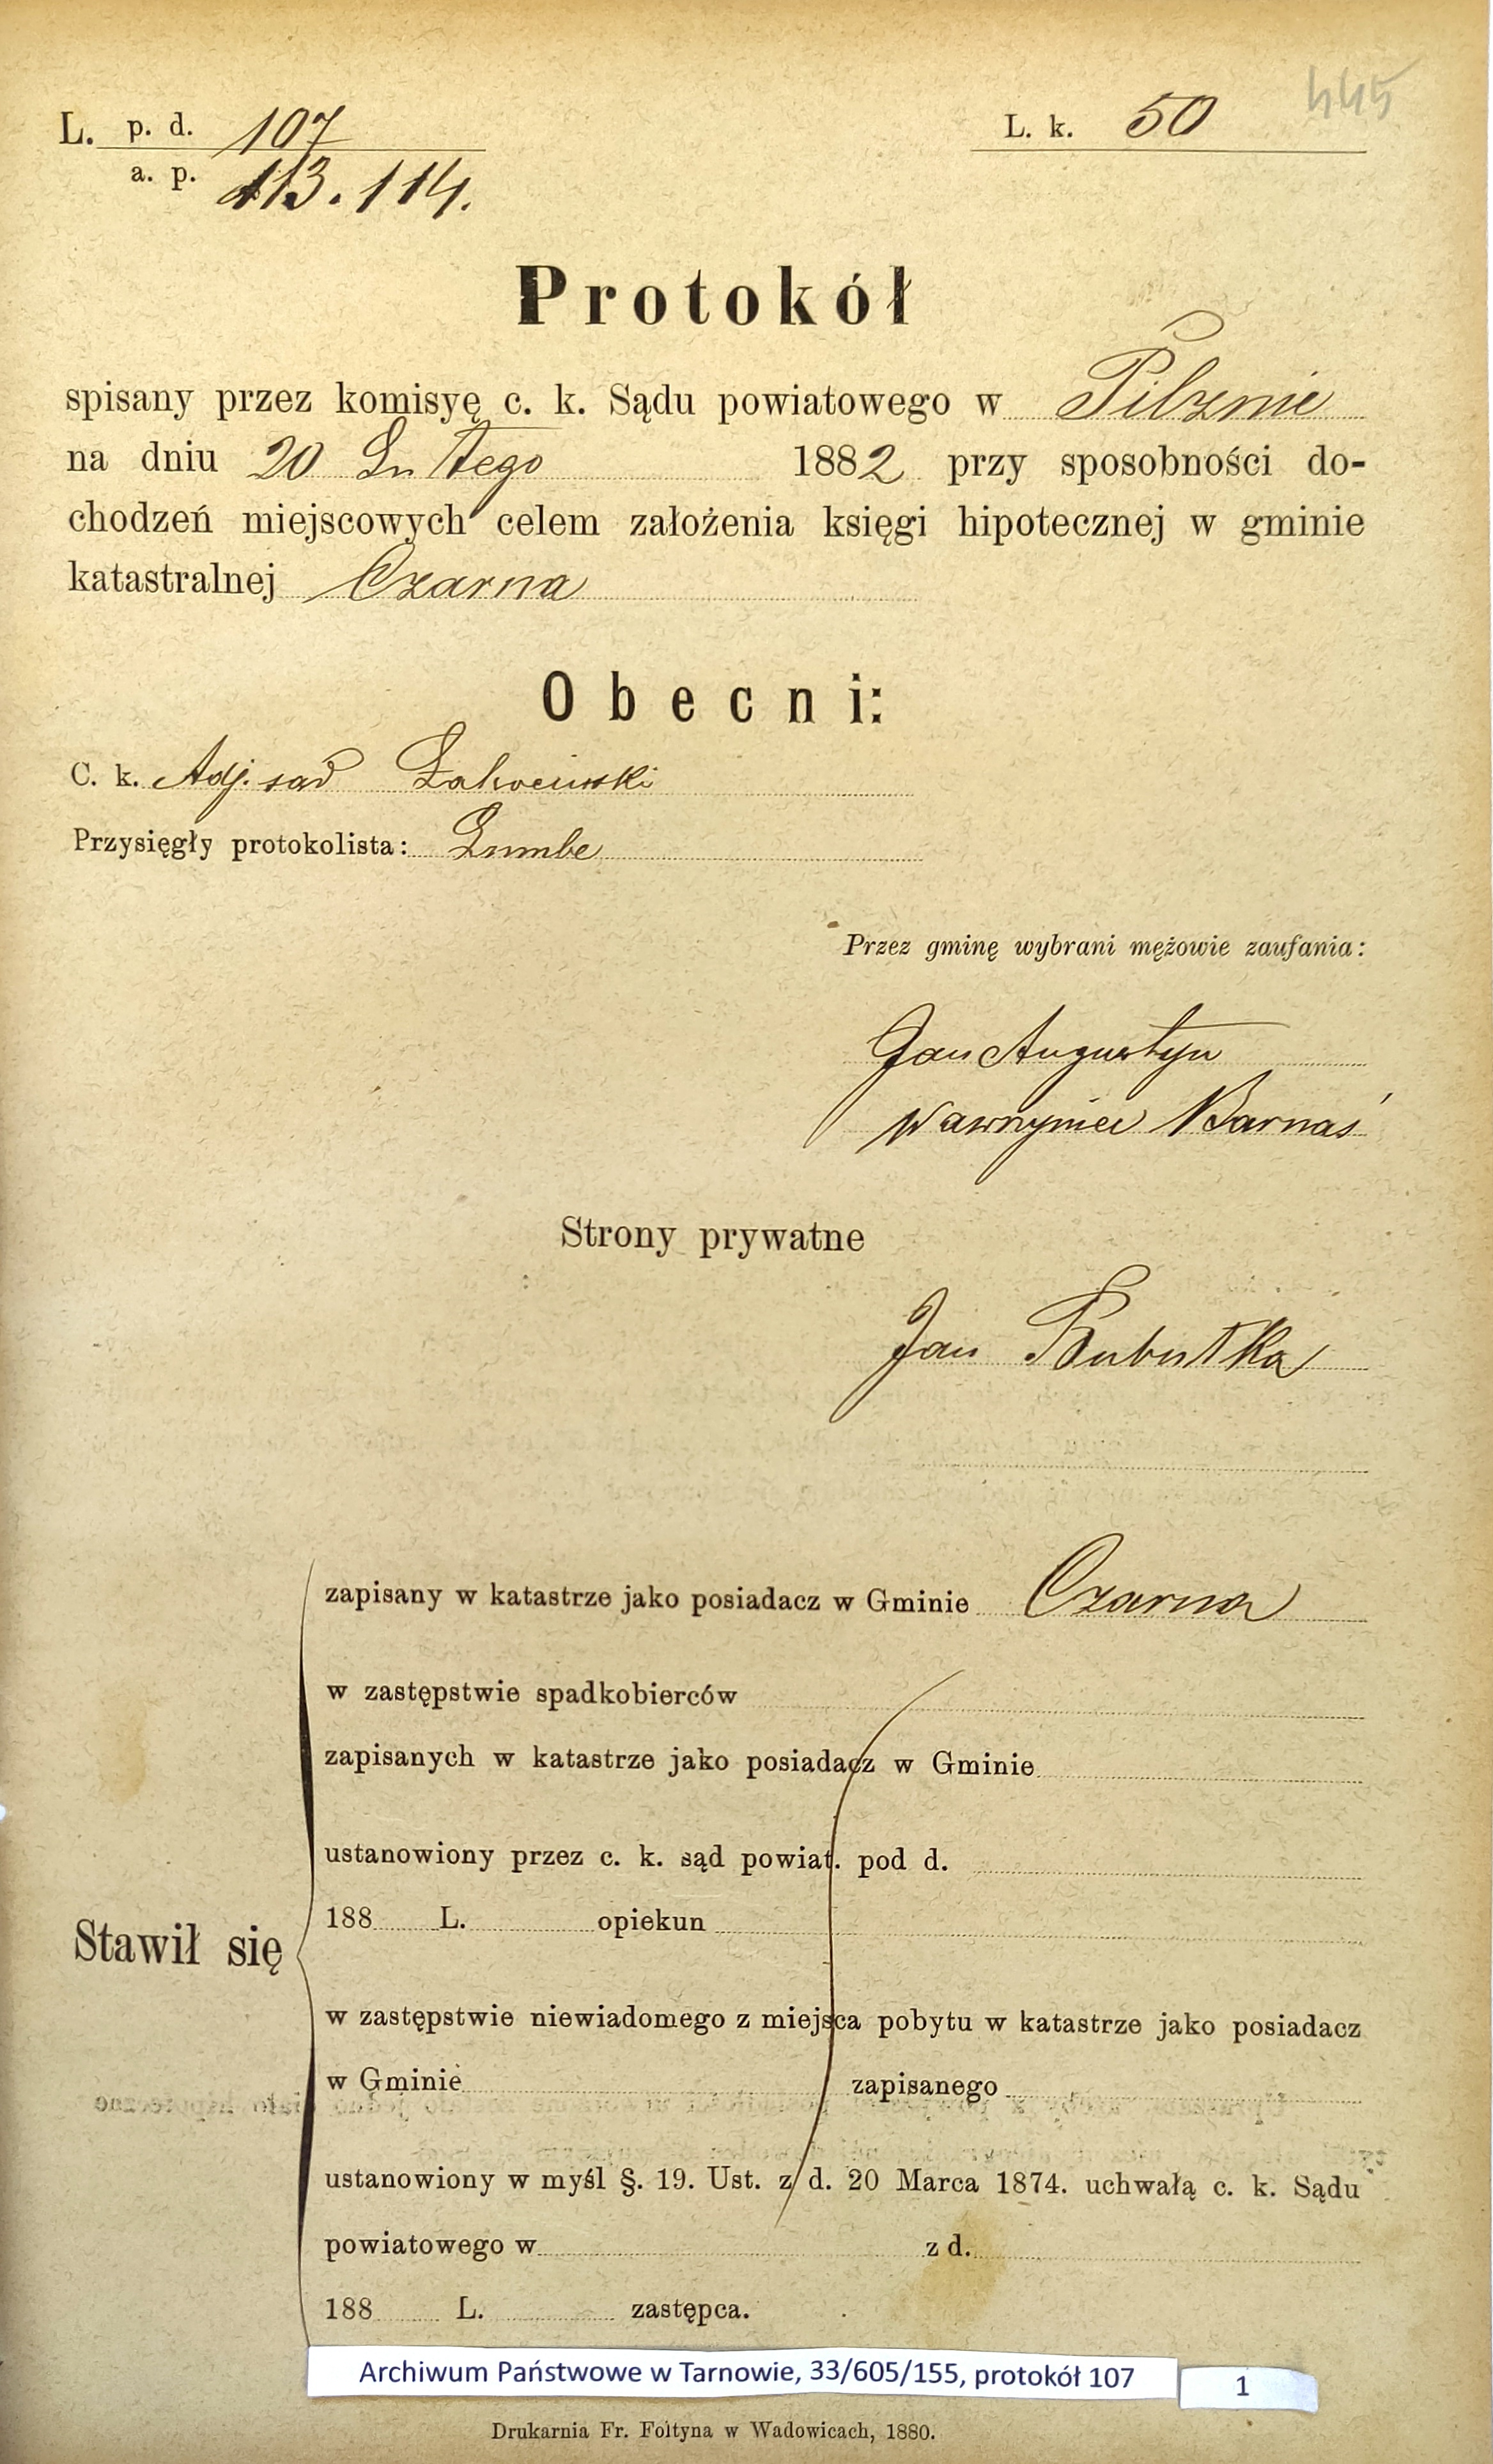 445
L. p. d. 107
a. p. 113. 114.
L. k. 50
Protokół
spisany przez komisyę c. k. Sądu powiatowego w Pilznie
na dniu 20 Lutego 1882 przy sposobności do-
chodzeń miejscowych celem założenia księgi hipotecznej w gminie
katastralnej Czarna
Obecni:
C. k. Adj. sąd
Przysięgły protokolista:
Przez gminę wybrani mężowie zaufania:
Jan Augustyn
Wawrzyniec Barnaś
Strony prywatne
Jan Bubutka
zapisany w katastrze jako posiadacz w Gminie Czarna
w zastępstwie spadkobierców
zapisanych w katastrze jako posiadacz w Gminie
ustanowiony przez c. k. sąd powiat. pod d.
188 L. opiekun
Stawił się
w zastępstwie niewiadomego z miejsca pobytu w katastrze jako posiadacz
w Gminie zapisanego
ustanowiony w myśl §. 19. Ust. z d. 20 Marca 1874. uchwałą c. k. Sądu
powiatowego w z d.
188 L. zastępca.
Archiwum Państwowe w Tarnowie, 33/605/155, protokół 107
1
Drukarnia Fr. Foltyna w Wadowicach, 1880.